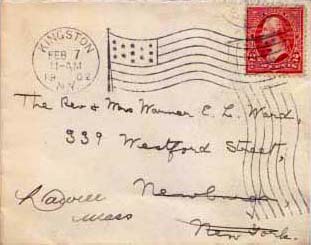 KINGSTON
FEB 7
11-AM
1902
N.Y.
The Rev & Mrs Warner E. L. Ward,
339 Westford Street,
Newburgh,
New York.
Lowell
Mass